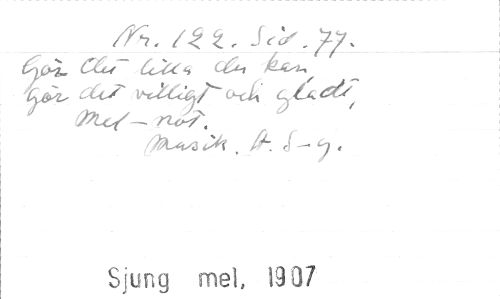 Nr. 122. Sid. 77.
Gör det lilla du kan,
gör det villigt och gladt,
Mel-not.
Musik. A. S-g.
Sjung mel, 1907